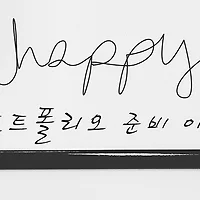 happy
포트폴리오 준비